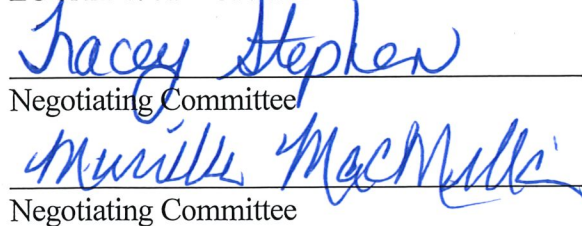 Tracey Stephen
Negotiating Committee
Murielle MacMillan
Negotiating Committee